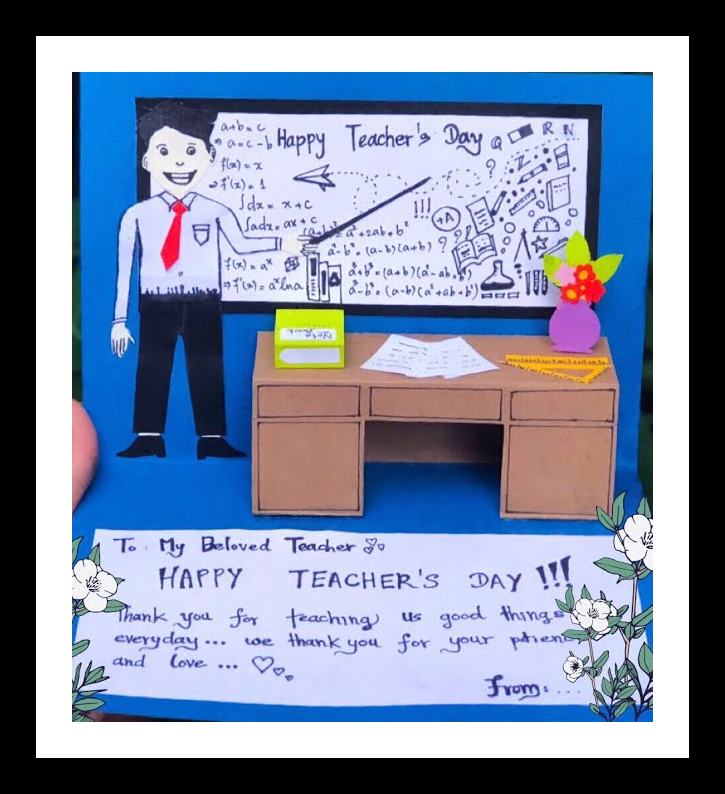 a+b=c
⇒ a=c-b
Happy Teacher's Day
Q R N
Z
f(x)=x
⇒ f'(x)=1
∫dx = x+c
∫adx = ax+c
!!!
?
A+
?
= a²+2ab+b²
a²-b² = (a-b)(a+b)
f(x)=aˣ
⇒ f'(x)=aˣlna
a³+b³=(a+b)(a²-ab+b²)
a³-b³=(a-b)(a²+ab+b²)
Note Book
To: My Beloved Teacher
HAPPY TEACHER'S DAY !!!
Thank you for teaching us good things
everyday... we thank you for your
and love ...
From: ...